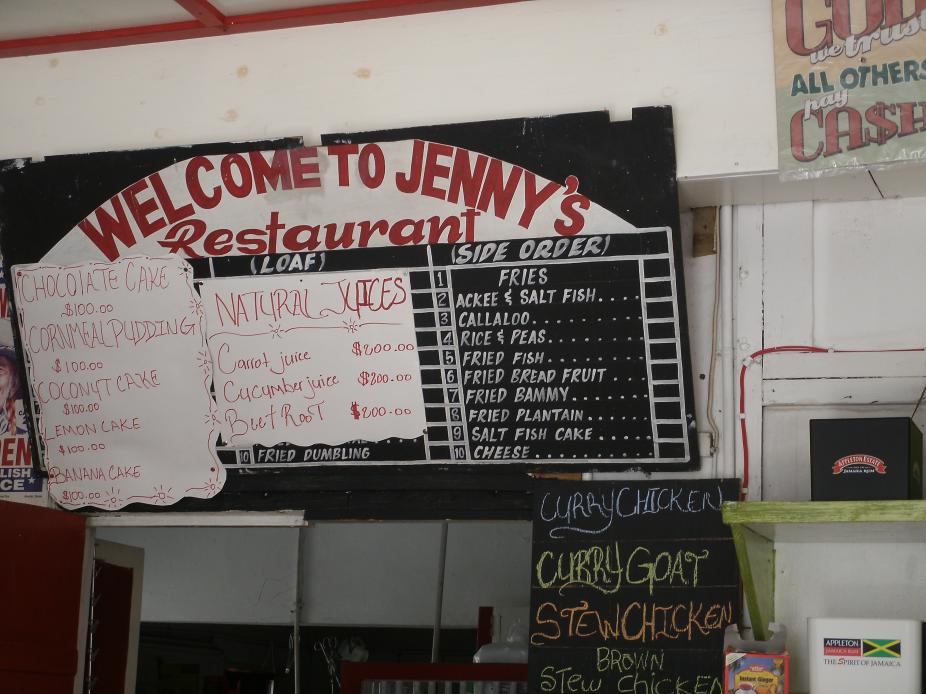 GOD
we trust
ALL OTHERS
pay
CA$H
WELCOME TO JENNY'S
Restaurant
(LOAF)
(SIDE ORDER)
CHOCOLATE CAKE
$100.00
CORNMEAL PUDDING
$100.00
COCONUT CAKE
$100.00
LEMON CAKE
$100.00
BANANA CAKE
$100.00
NATURAL JUICES
Carrot juice $200.00
Cucumber juice $200.00
Beet RooT $200.00
10 FRIED DUMBLING
1 FRIES
2 ACKEE & SALT FISH....
3 CALLALOO.........
4 RICE & PEAS.......
5 FRIED FISH.......
6 FRIED BREAD FRUIT....
7 FRIED BAMMY......
8 FRIED PLANTAIN.....
9 SALT FISH CAKE....
10 CHEESE.........
LISH
CE
CURRY CHICKEN
CURRY GOAT
STEW CHICKEN
BROWN
STEW CHICKEN
APPLETON ESTATE
JAMAICA RUM
APPLETON
JAMAICA RUM
THE SPIRIT OF JAMAICA
Instant Ginger